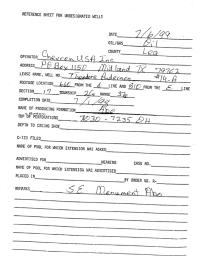 REFERENCE SHEET FOR UNDESIGNATED WELLS
DATE 7/6/99
OIL/GAS Oil
COUNTY Lea
OPERATOR Chevron USA Inc
ADDRESS PO Box 1150 Midland TX 79702
LEASE NAME, WELL NO. Theodore Anderson #14-A
FOOTAGE LOCATION, 660 FROM THE LINE AND 810 FROM THE E LINE
SECTION 17 TOWNSHIP RANGE
COMPLETION DATE 7/1/99
NAME OF PRODUCING FORMATION Abo
TOP OF PERFORATIONS 7030 - 7235 OH
DEPTH TO CASING SHOE
C-123 FILED
NAME OF POOL FOR WHICH EXTENSION WAS ASKED
ADVERTISED FOR HEARING CASE NO.
NAME OF POOL FOR WHICH EXTENSION WAS ADVERTISED
PLACED IN BY ORDER NO. R-
REMARKS: S.E. Monument Abo